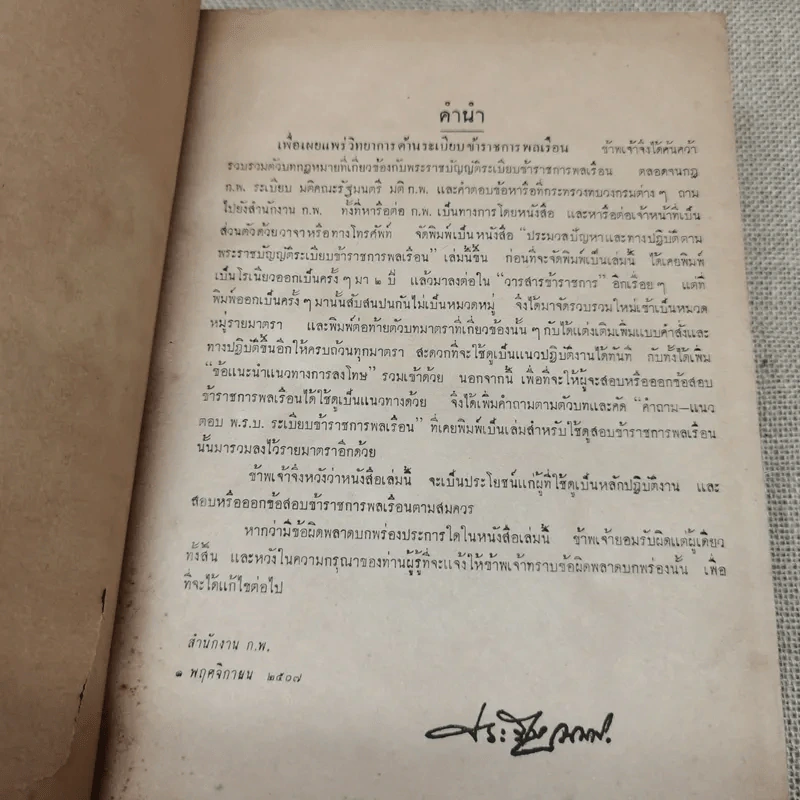 คำนำ
เพื่อเผยแพร่วิทยาการด้านระเบียบข้าราชการพลเรือน ข้าพเจ้าจึงได้ค้นคว้า
รวบรวมตัวบทกฎหมายที่เกี่ยวข้องกับพระราชบัญญัติระเบียบข้าราชการพลเรือน ตลอดจนกฎ
ก.พ. ระเบียบ มติคณะรัฐมนตรี มติ ก.พ. และคำตอบข้อหารือที่กระทรวงทบวงกรมต่าง ๆ ถาม
ไปยังสำนักงาน ก.พ. ทั้งที่หารือต่อ ก.พ. เป็นทางการโดยหนังสือ และหารือต่อเจ้าหน้าที่เป็น
ส่วนตัวด้วยวาจาหรือทางโทรศัพท์ จัดพิมพ์เป็นหนังสือ “ประมวลปัญหาและทางปฏิบัติตาม
พระราชบัญญัติระเบียบข้าราชการพลเรือน” เล่มนี้ขึ้น ก่อนที่จะจัดพิมพ์เป็นเล่มนี้ ได้เคยพิมพ์
เป็นโรเนียวออกเป็นครั้ง ๆ มา ๒ ปี แล้วมาลงต่อใน “วารสารข้าราชการ” อีกเรื่อย ๆ แต่ที่
พิมพ์ออกเป็นครั้ง ๆ มานั้นสับสนปนกันไม่เป็นหมวดหมู่ จึงได้มาจัดรวบรวมใหม่เข้าเป็นหมวด
หมู่รายมาตรา และพิมพ์ต่อท้ายตัวบทมาตราที่เกี่ยวข้องนั้น ๆ กับได้แต่งเติมเพิ่มแบบคำสั่งและ
ทางปฏิบัติขึ้นอีกให้ครบถ้วนทุกมาตรา สะดวกที่จะใช้ดูเป็นแนวปฏิบัติงานได้ทันที กับทั้งได้เพิ่ม
“ข้อแนะนำแนวทางการลงโทษ” รวมเข้าด้วย นอกจากนี้ เพื่อที่จะให้ผู้จะสอบหรือออกข้อสอบ
ข้าราชการพลเรือนได้ใช้ดูเป็นแนวทางด้วย จึงได้เพิ่มคำถามตามตัวบทและคัด “คำถาม—แนว
ตอบ พ.ร.บ. ระเบียบข้าราชการพลเรือน” ที่เคยพิมพ์เป็นเล่มสำหรับใช้ดูสอบข้าราชการพลเรือน
นั้นมารวมลงไว้รายมาตราอีกด้วย
ข้าพเจ้าจึงหวังว่าหนังสือเล่มนี้ จะเป็นประโยชน์แก่ผู้ที่ใช้ดูเป็นหลักปฏิบัติงาน และ
สอบหรือออกข้อสอบข้าราชการพลเรือนตามสมควร
หากว่ามีข้อผิดพลาดบกพร่องประการใดในหนังสือเล่มนี้ ข้าพเจ้ายอมรับผิดแต่ผู้เดียว
ทั้งสิ้น และหวังในความกรุณาของท่านผู้รู้ที่จะแจ้งให้ข้าพเจ้าทราบข้อผิดพลาดบกพร่องนั้น เพื่อ
ที่จะได้แก้ไขต่อไป
สำนักงาน ก.พ.
๑ พฤศจิกายน ๒๕๐๗